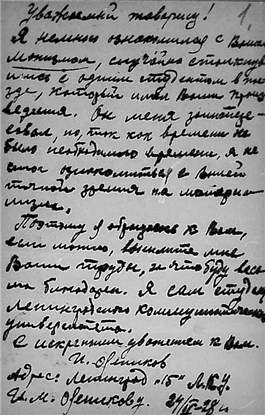 Уважаемый товарищ! 1.
Я немного ознакомился с Вашим
монизмом, случайно столкнув
шись с одним студентом в пое
зде, который имел Ваши произ
ведения. Он меня заинтере-
совал, но, так как времени не
было необходимого времени, я не
смог ознакомиться с Вашей
точкой зрения на материа-
лизм.
Поэтому я обращаюсь к Вам,
если можно, вышлите мне
Ваши труды, за что буду весь
ма благодарен. Я сам студент
Ленинградского коммунистического
университета.
С искренним уважением к Вам.
И.
Адрес: Ленинград "15" Л.К.У.
И. М.